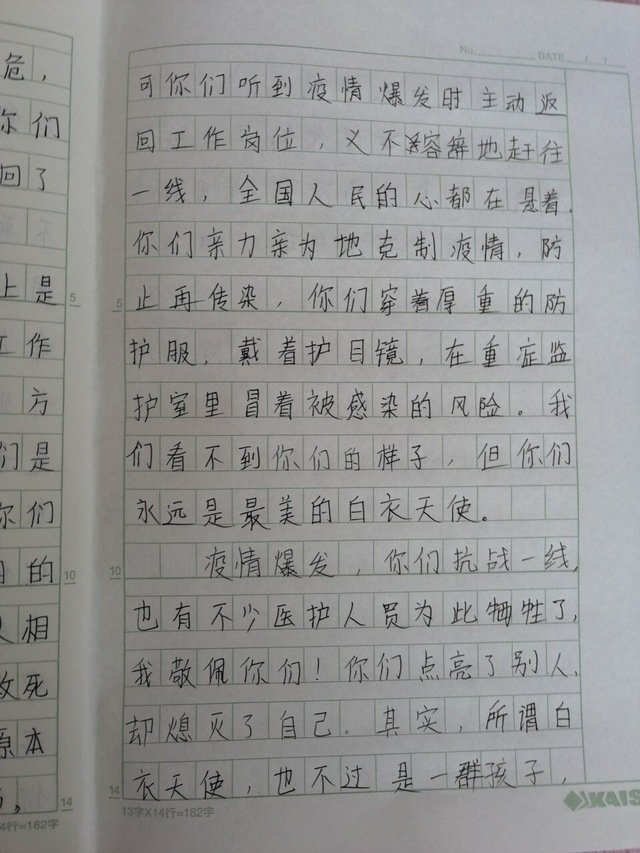 危，
你们
回了
上是
工作
方
们是
你们
的
人相
死
原本
No. DATE / /
可你们听到疫情爆发时主动返
回工作岗位，义不容辞地赶往
一线，全国人民的心都在悬着，
你们亲力亲为地克制疫情，防
止再传染，你们穿着厚重的防
护服，戴着护目镜，在重症监
护室里冒着被感染的风险。我
们看不到你们的样子，但你们
永远是最美的白衣天使。
疫情爆发，你们抗战一线，
也有不少医护人员为此牺牲了，
我敬佩你们！你们点亮了别人，
却熄灭了自己．其实，所谓白
衣天使，也不过是一群孩子，
5
10
14
4行=182字
5
10
14
13字X14行=182字
KAIS